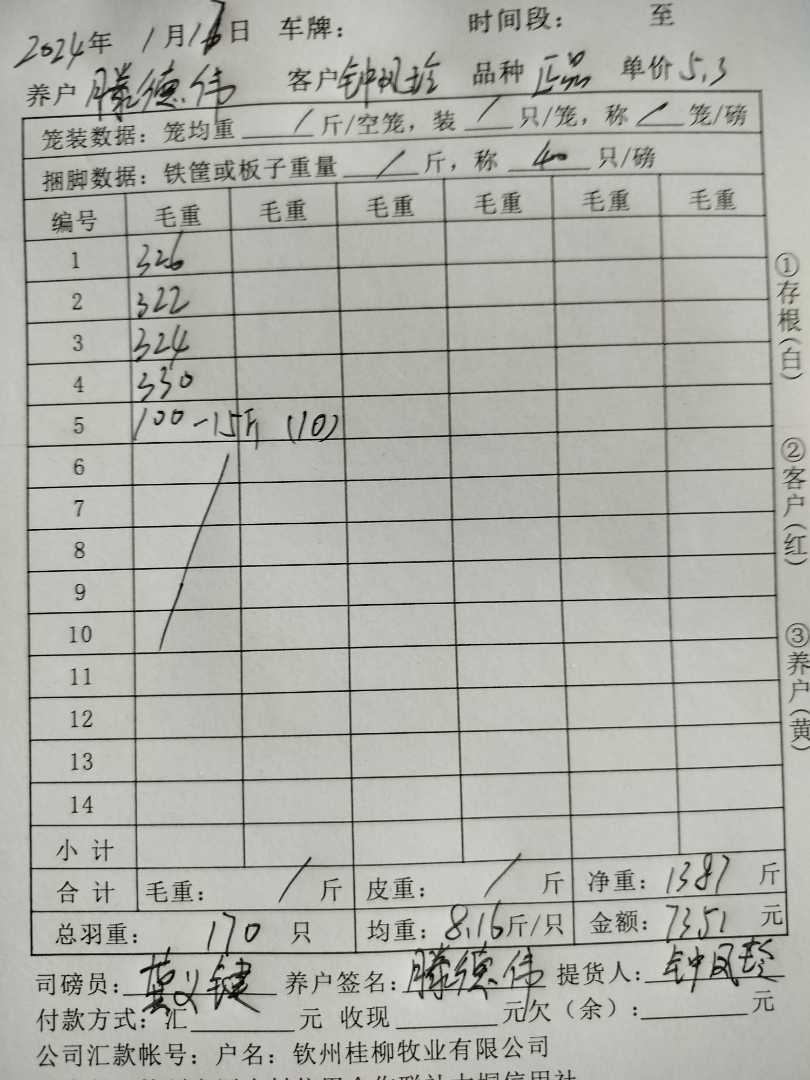 2024年 1月16日 车牌: 时间段: 至
养户 滕德伟 客户 钟凤玲 品种 正品 单价 5.3
笼装数据: 笼均重 / 斤/空笼, 装 / 只/笼, 称 / 笼/磅
捆脚数据: 铁筐或板子重量 / 斤, 称 40 只/磅
编号 毛重 毛重 毛重 毛重 毛重 毛重
1 326
2 322
3 324
4 330
5 100-15斤 (10)
6
7
8
9
10
11
12
13
14
小计
合计 毛重: / 斤 皮重: / 斤 净重: 1387 斤
总羽重: 170 只 均重: 8.16 斤/只 金额: 7351 元
司磅员: 键 养户签名: 滕德伟 提货人: 钟凤玲
付款方式: 汇 元 收现 元欠(余): 元
公司汇款帐号: 户名: 钦州桂柳牧业有限公司
①存根(白)
②客户(红)
③养户(黄)